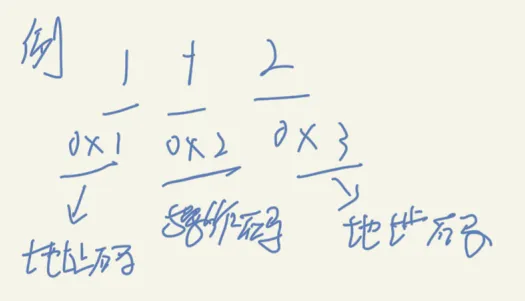 例
1 + 2
0x1 0x2 0x3
地址码 操作码 地址码